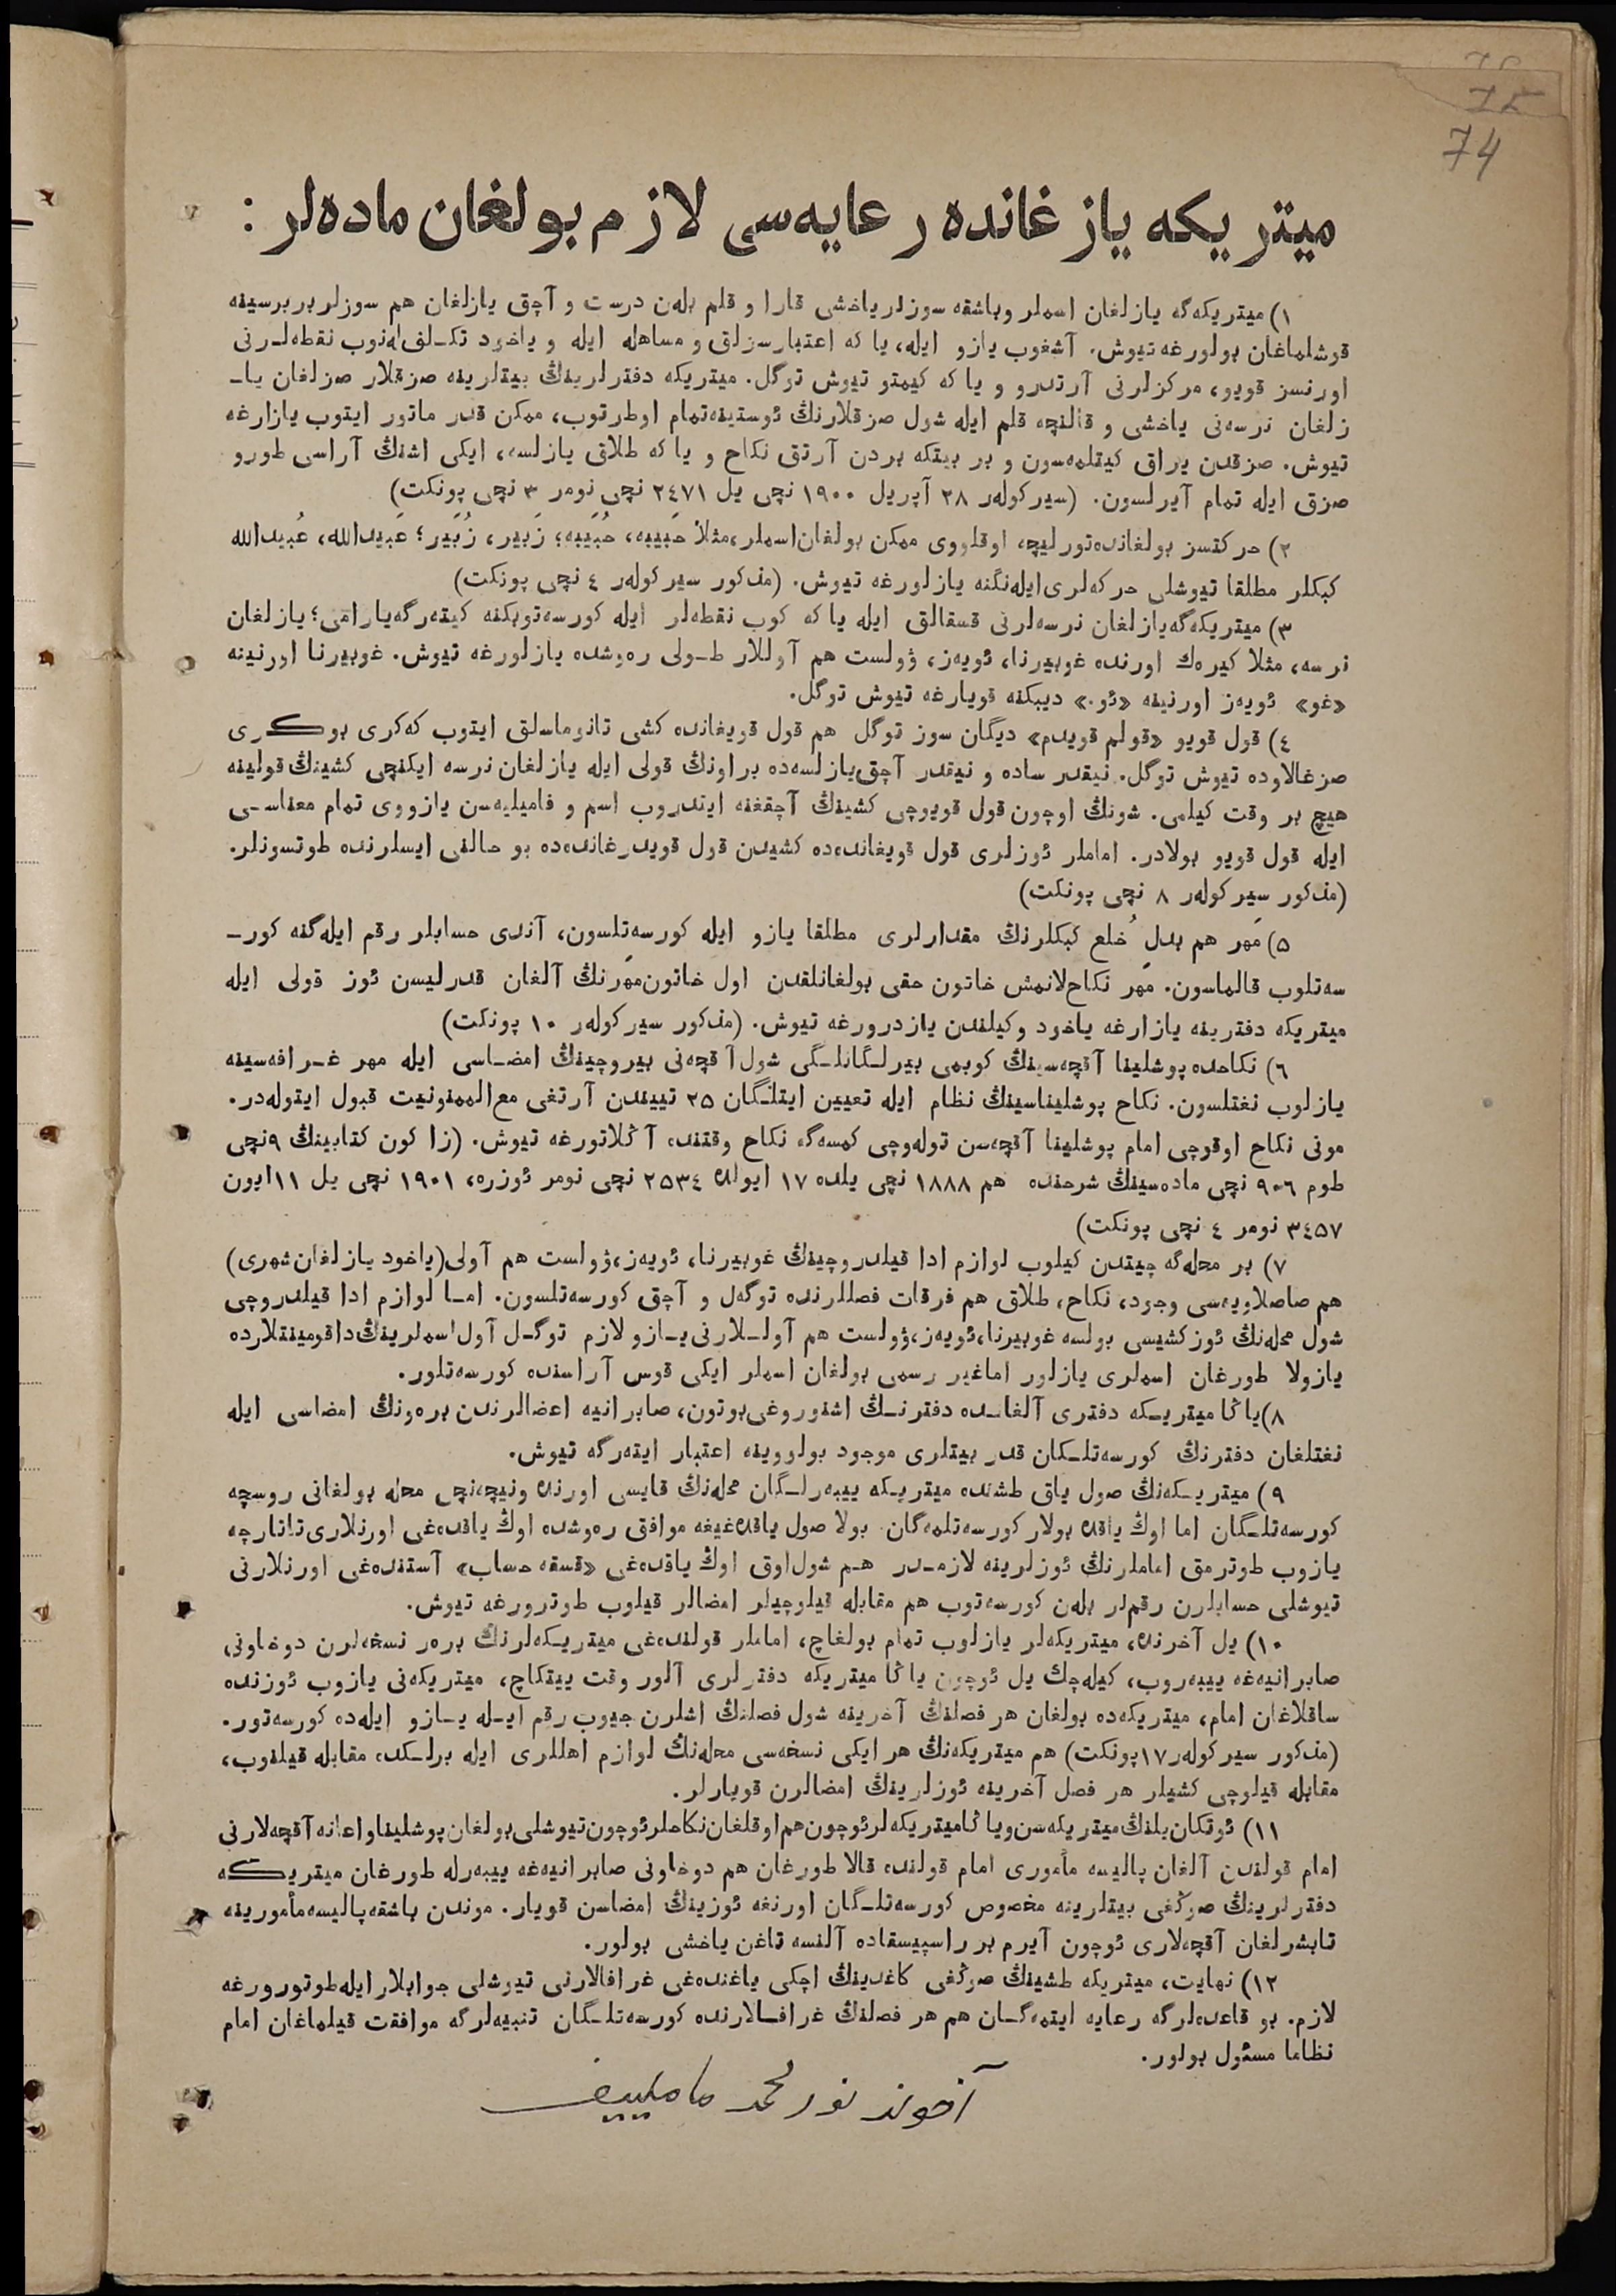 74
ميتريكه يازغانده رعايه‌سى لازم بولغان ماده‌لر:
۱) ميتريكه‌گه يازلغان اسملر وباشقه سوزلر ياخشى قارا و قلم بله‌ن درست و آچق يازلغان هم سوزلر بربرسينه
قوشلماغان بولورغه تيوش. آشغوب يازو ايله، يا كه اعتبارسزلق و مساهله ايله و ياخود تكـلف‌له‌نوب نقطه‌لـرنى
اورنسز قويو، مركزلرنى آرتدرو و يا كه كيمتو تيوش توگل. ميتريكه دفترلرينڭ بيتلرينه صزقلار صزلغان يا‍ـ
زلغان نرسه‌نى ياخشى و قالنچه قلم ايله شول صزقلارنڭ ئوستينه تمام اوطرتوب، ممكن قدر ماتور ايتوب يازارغه
تيوش. صزقدن يراق كيتلمه‌سون و بر بيتكه بردن آرتق نكاح و يا كه طلاق يازلسه، ايكى اشنڭ آراسى طورو
صزق ايله تمام آيرلسون. (سيركوله‌ر ۲۸ آپريل ۱۹۰۰ نچى يل ۲٤۷۱ نچى نومر ۳ نچى پونكت)
۲) حركتسز بولغانده تورليچه اوقلووى ممكن بولغان اسملر، مثلا حَبيبه، حُبَيبه؛ زَبير، زُبَير؛ عَبيدالله، عُبيدالله
كبكلر مطلقا تيوشلى حركه‌لرى ايله‌نگنه يازلورغه تيوش. (مذكور سيركوله‌ر ٤ نچى پونكت)
۳) ميتريكه‌گه يازلغان نرسه‌لرنى قسقالق ايله يا كه كوب نقطه‌لر ايله كورسه‌توبكنه كيته‌رگه يارامى؛ يازلغان
نرسه، مثلا كيره‌ك اورنده غوبيرنا، ئويه‌ز، ۋولست هم آوللار طـولى ره‌وشده يازلورغه تيوش. غوبيرنا اورنينه
«غو» ئويه‌ز اورنينه «ئو.» ديبكنه قويارغه تيوش توگل.
٤) قول قويو «قولم قويدم» ديگان سوز توگل هم قول قويغانده كشى تانوماسلق ايتوب كه‌كرى بوكـرى
صزغالاوده تيوش توگل. نيقدر ساده و نيقدر آچق يازلسه‌ده براونڭ قولى ايله يازلغان نرسه ايكنچى كشينڭ قولينه
هيچ بر وقت كيلمى. شونڭ اوچون قول قويوچى كشينڭ آچقغنه ايتدروب اسم و فاميليه‌سن يازووى تمام معناسـى
ايله قول قويو بولادر. اماملر ئوزلرى قول قويغانده‌ده كشيدن قول قويدرغانده‌ده بو حالنى ايسلرنده طوتسونلر.
(مذكور سيركوله‌ر ۸ نچى پونكت)
۵) مَهر هم بدلِ خُلع كبكلرنڭ مقدارلرى مطلقا يازو ايله كورسه‌تلسون، آندى حسابلر رقم ايله‌گنه كور‍ـ
سه‌تلوب قالماسون. مهر نكاح‌لانمش خاتون حقى بولغانلقدن اول خاتون مَهرنڭ آلغان قدرليسن ئوز قولى ايله
ميتريكه دفترينه يازارغه ياخود وكيلندن يازدرورغه تيوش. (مذكور سيركوله‌ر ۱۰ پونكت)
٦) نكاحده پوشلينا آقچه‌سينڭ كوبمى بيرلـگانلـگى شول آقچه‌نى بيروچينڭ امضـاسى ايله مهر غـرافه‌سينه
يازلوب نغتلسون. نكاح پوشليناسينڭ نظام ايله تعيين ايتلـگان ۲۵ تييندن آرتغى مع‌الممنونيت قبول ايتوله‌در.
مونى نكاح اوقوچى امام پوشلينا آقچه‌سن توله‌وچى كمسه‌گه نكاح وقتنده آڭلاتورغه تيوش. (زا كون كتابينڭ ۹نچى
طوم ۹۰٦ نچى ماده‌سينڭ شرحنده هم ۱۸۸۸ نچى يلده ۱۷ ايولده ۲۵۳٤ نچى نومر ئوزره، ۱۹۰۱ نچى يل ۱۱ايون
۳٤۵۷ نومر ٤ نچى پونكت)
۷) بر محله‌گه چيتدن كيلوب لوازم ادا قيلدروچينڭ غوبيرنا، ئويه‌ز، ۋولست هم آولى (ياخود يازلغان شهرى)
هم صاصلاويه‌سى وجود، نكاح، طلاق هم فرقات فصللرنده توگه‌ل و آچق كورسه‌تلسون. امـا لوازم ادا قيلدروچى
شول محله‌نڭ ئوز كشيسى بولسه غوبيرنا، ئويه‌ز، ۋولست هم آولـلارنى يـازو لازم توگـل آول اسملرينڭ داقومينتلارده
يازولا طورغان اسملرى يازلور اماغير رسمى بولغان اسملر ايكى قوس آراسنده كورسه‌تلور.
۸) ياڭا ميتريـكه دفترى آلغانـده دفترنـڭ اشنوروغى بوتون، صابرانيه اعضالرندن بره‌ونڭ امضاسى ايله
نغتلغان دفترنڭ كورسه‌تلـكان قدر بيتلرى موجود بولووينه اعتبار ايته‌رگه تيوش.
۹) ميتريـكه‌نڭ صول ياق طشنده ميتريـكه ييبه‌رلـگان محله‌نڭ قايسى اورنده ونيچه‌نچى محله بولغانى روسچه
كورسه‌تلـگان اما اوڭ ياقده بولار كورسه‌تلمه‌گان. بولا صول ياقده‌غيغه موافق ره‌وشده اوڭ ياقده‌غى اورنلارى تاتارچه
يازوب طوترمق اماملرنڭ ئوزلرينه لازمـدر هـم شول‌اوق اوڭ ياقده‌غى «قسقه حساب» آستنده‌غى اورنلارنى
تيوشلى حسابلرن رقم‌لر بله‌ن كورسه‌توب هم مقابله قيلوچيلر امضالر قيلوب طوترورغه تيوش.
۱۰) يل آخرنده، ميتريكه‌لر يازلوب تمام بولغاچ، اماملر قولنده‌غى ميتريـكه‌لرنڭ بره‌ر نسخه‌لرن دوخاونى
صابرانيه‌غه ييبه‌روب، كيله‌چك يل ئوچون ياڭا ميتريكه دفترلرى آلور وقت ييتكاچ، ميتريكه‌نى يازوب ئوزنده
ساقلاغان امام، ميتريكه‌ده بولغان هر فصلنڭ آخرينه شول فصلنڭ اشلرن جيوب رقم ايـله يـازو ايله‌ده كورسه‌تور.
(مذكور سيركوله‌ر ۱۷پونكت) هم ميتريكه‌نڭ هر ايكى نسخه‌سى محله‌نڭ لوازم اهللرى ايله برلـكده مقابله قيلنوب،
مقابله قيلوچى كشيلر هر فصل آخرينه ئوزلرينڭ امضالرن قويارلر.
۱۱) ئوتكان يلنڭ ميتريكه‌سن و ياڭا ميتريكه‌لر ئوچون هم اوقلغان نكاحلر ئوچون تيوشلى بولغان پوشلينا و اعانه آقچه‌لارنى
امام قولندن آلغان پاليسه مأمورى امام قولنده قالا طورغان هم دوخاونى صابرانيه‌غه ييبه‌رله طورغان ميتريـكه
دفترلرينڭ صوڭغى بيتلرينه مخصوص كورسه‌تلـگان اورنغه ئوزينڭ امضاسن قويار. موندن باشقه پاليسه مأمورينه
تابشرلغان آقچه‌لارى ئوچون آيرم بر راسپيسقاده آلنسه تاغن ياخشى بولور.
۱۲) نهايت، ميتريكه طشينڭ صوڭغى كاغدينڭ اچكى ياغنده‌غى غرافالارنى تيوشلى جوابلار ايله طوتورورغه
لازم. بو قاعده‌لرگه رعايه ايتمه‌گـان هم هر فصلنڭ غرافـالارنده كورسه‌تلـگان تنبيه‌لرگه موافقت قيلماغان امام
نظاما مسئول بولور.
آخوند نورمحمد ماملييف